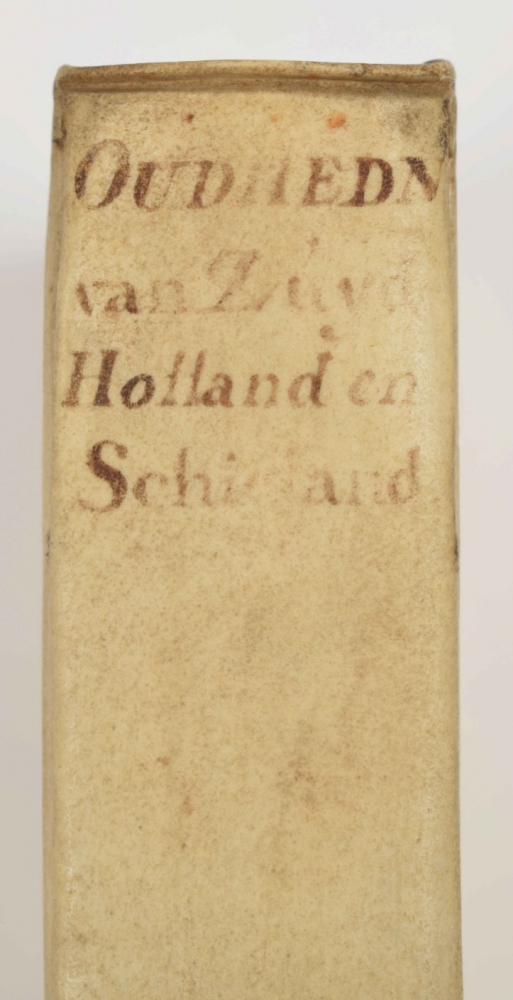 OUDHEDN
van Zuyd
Holland en
Schieland